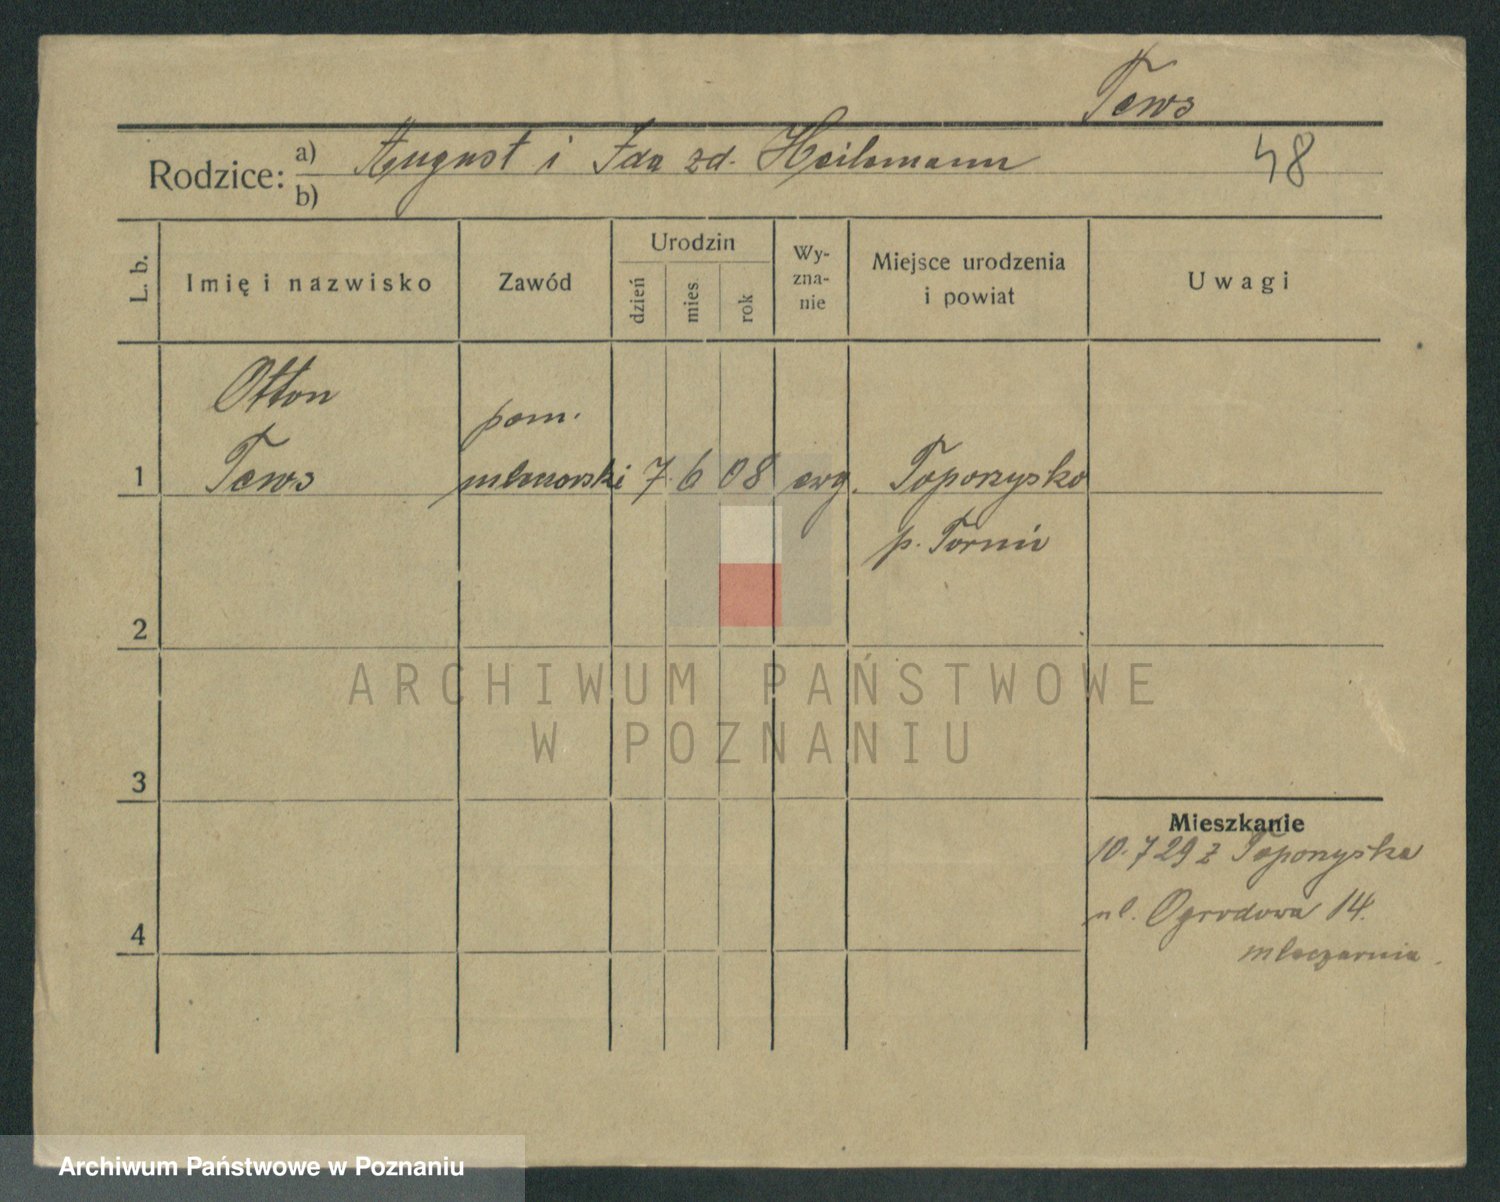 Tews
Rodzice: a) August i Ida zd. Heilemann 48
b)
L. b. Imię i nazwisko Zawód Urodzin dzień mies. rok Wy-zna-nie Miejsce urodzenia i powiat Uwagi
Otton
pom.
1 Tews mleczarski 7 6 08 ewg. Toporzysko
p. Toruń
2
3
Mieszkanie
10.7 29 z Toporzyska
ul. Ogrodowa 14.
4 mleczarnia.
ARCHIWUM PAŃSTWOWE
W POZNANIU
Archiwum Państwowe w Poznaniu